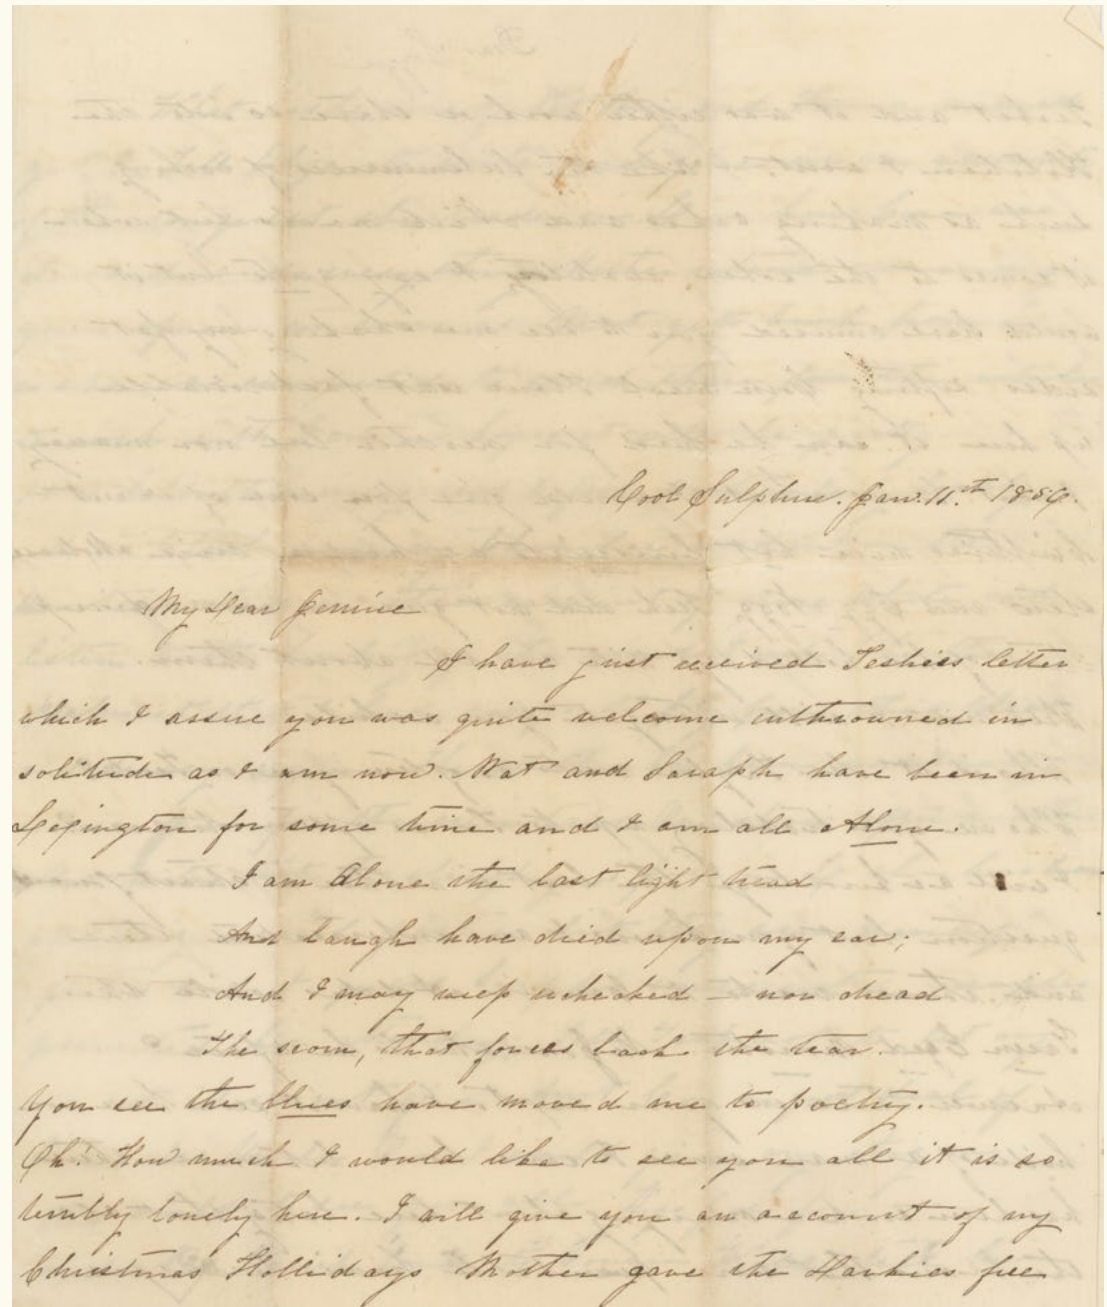 Cool Sulphur. Jan. 11.th 1856.
My Dear Jennie
I have just received Leslies letter
which I assure you was quite welcome inthrowned in
solitude as I am now. Nat and Saraph have been in
Lexington for some time and I am all Alone.
I am Alone the last light tread
And laugh have died upon my ear;
And I may weep unchecked – nor dread
The scorn, that forces back the tear.
You see the blues have moved me to poetry.
Oh! How much I would like to see you all it is so
terribly lonely here. I will give you an account of my
Christmas Hollidays Mother gave the Darkies free